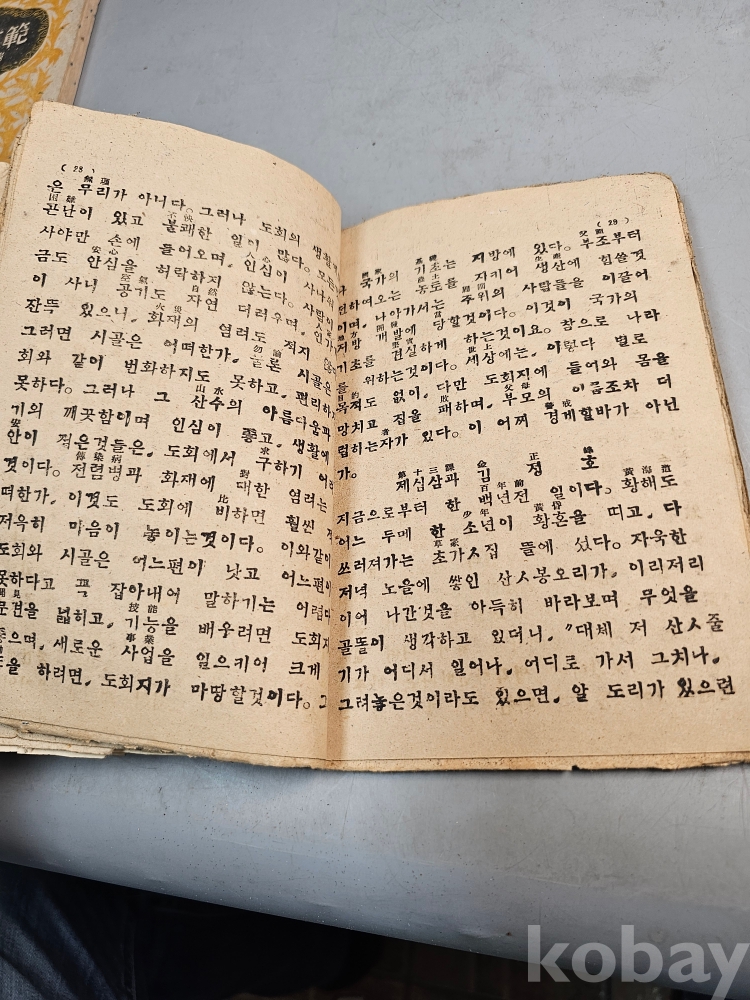 範
( 28 )
은 무리가 아니다。 그러나 도회의 생활
곤난이 있고 불쾌한 일이 많다。
사야만 손에 들어오며, 인심이 사나워
금도 안심을 허락하지 않는다。 사람이
이 사니 공기도 자연 더러우며, 인가
잔뜩 있으니, 화재의 염려도 적지
그러면 시골은 어떠한가。 물론 시골은
회와 같이 번화하지도 못하고, 편리하
못하다。 그러나 그 산수의 아름다움과
기의 깨끗함이며 인심이 좋고, 생활에
안이 적은것들은, 도회에서 구하기 어려
것이다。 전렴병과 화재에 대한 염려는
떠한가, 이것도 도회에 비하면 훨씬
저윽히 마음이 놓이는것이다。 이와같이
도회와 시골은 어느편이 낫고 어느편이
못하다고 꼭 잡아내어 말하기는 어렵다
문견을 넓히고, 기능을 배우려면 도회지
좋으며, 새로운 사업을 일으키어 크게
을 하려면, 도회지가 마땅할것이다。 그
( 29 )
국가의 기초는 지방에 있다。 부조부터
하여오는 농토를 지키어 생산에 힘쓸것
이며, 나아가서는 주위의 사람들을 이끌어
지방 개발에 당할것이다。 이것이 국가의
기초를 건실하게 하는것이요。 참으로 나라
를 위하는것이다。 세상에는, 이렇다 벌로
목적도 없이, 다만 도회지에 들어와 몸을
망치고 집을 패하며, 부모의 이름조차 더
럽히는자가 있다。 이 어찌 경계할바가 아닌
가。
第十三課 金正嵭
제십삼과 김정호
지금으로부터 한 백년전 일이다。 황해도
어느 두메 한 소년이 황혼을 띠고, 다
쓰러져가는 초가ㅅ집 뜰에 섰다。 자욱한
저녁 노을에 쌓인 산ㅅ봉오리가, 이리저리
이어 나간것을 아득히 바라보며 무엇을
골똘이 생각하고 있더니, “대체 저 산ㅅ줄
기가 어디서 일어나, 어디로 가서 그치나,
그려놓은것이라도 있으면, 알 도리가 있으련
kobay